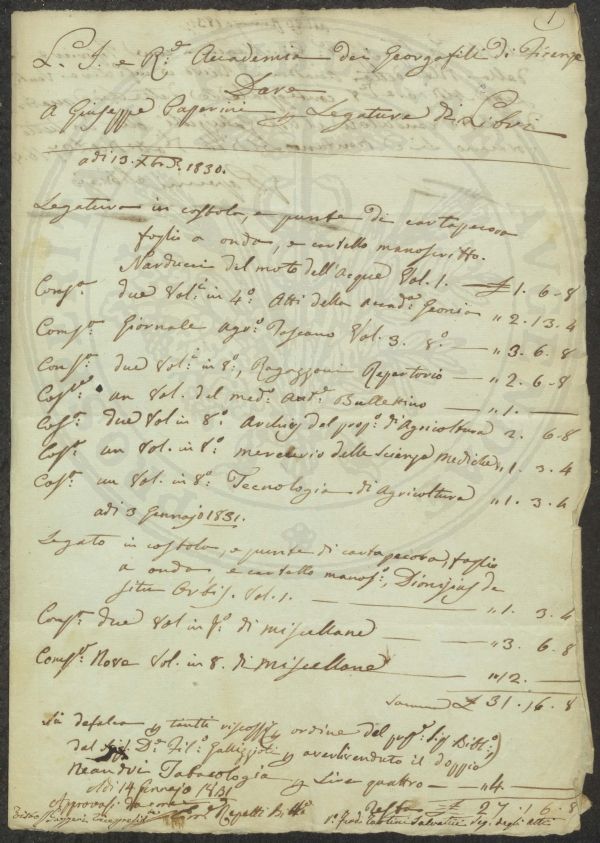 1
L. I. e R.e Accademia dei Georgofili di Firenze
Dare
A Giuseppe Paperini p Legature di Libri
adi 13. Xbre 1830.
Legatura in costola, e punte di cartapecora
foglio a onda, e cartello manoscritto.
Narducci del moto dell'Acque Vol. 1. £ 1. 6 - 8
Comp.a due Vol.i in 4.o Atti della Accad.a " 2. 13. 4
Comp.a Giornale Agr.o Toscano Vol. 3. 8.o — " 3. 6. 8
Comp.a due Vol.i in 8.o, Ragazzoni Repertorio — " 2. 6 - 8
Comp.a un Vol. del med.o Aut.e Bullettino — " 1. —
Comp.a due Vol in 8.o Archivj del prop.o d'Agricoltura 2. 6 - 8
Comp.a un Vol. in 8.o mercurio delle Scienze mediche " 1. 3. 4
Comp.a un Vol. in 8.o Tecnologia di Agricoltura " 1. 3. 4
adi 3 Gennajo 1831.
Legato in costola, e punte di cartapecora, foglio
a onda e cartello manos.o, Dionisius de
situ Orbis. Vol. 1. — " 1. 3. 4
Comp.a due Vol in f.o di miscellane — " 3. 6. 8
Comp.a Nove Vol. in 8. di miscellane — " 12. —
Somma £ 31. 16. 8
Si defalca p tanti riscossi p ordine del
dal Sig.r D.r Fil.o Gallizioli p avervenduto il doppio
Neandri Tabacologia p Lire quattro — " 4. —
Resta £ 27. 16. 8
Adi 14 Gennajo 1831
Approvasi da me
Repetti
Tartini Salvatici Seg. degli Atti